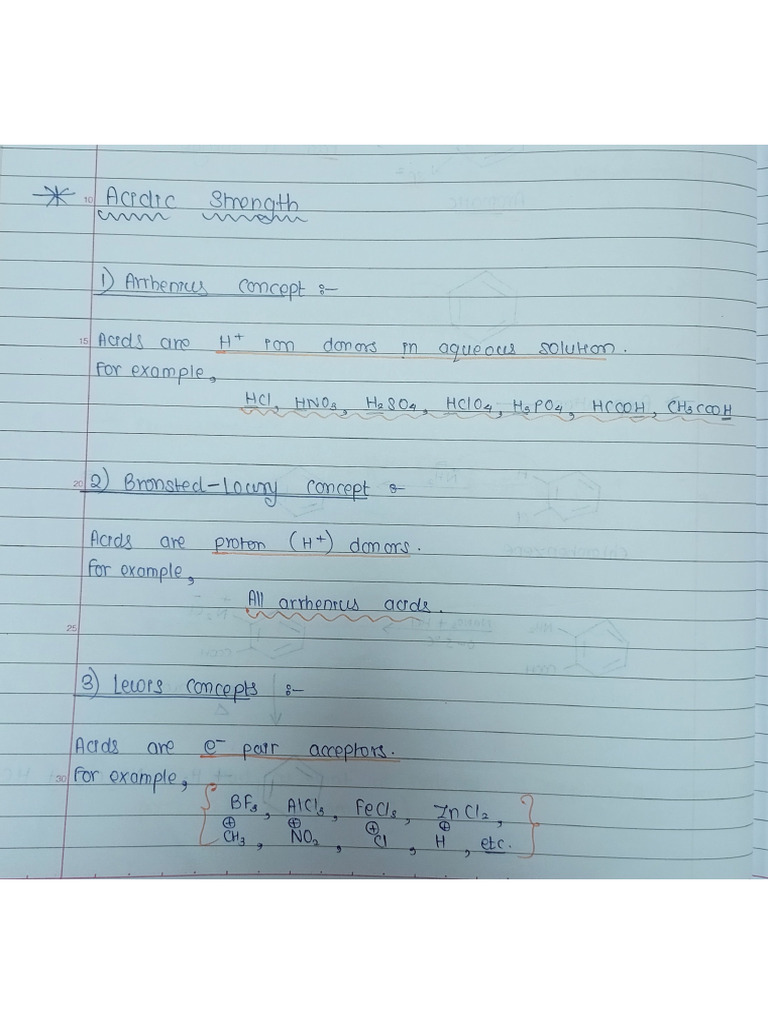 10 Acidic Strength
1) Arrhenius concept :-
15 Acids are H+ ion donors in aqueous solution.
For example,
HCl, HNO3, H2SO4, HClO4, H3PO4, HCOOH, CH3COOH
20 2) Bronsted-Lowry concept :-
Acids are proton (H+) donors.
For example,
All arrhenius acids.
25
3) Lewis concepts :-
Acids are e- pair acceptors.
30 For example,
BF3, AlCl3, FeCl3, ZnCl2,
⊕CH3, ⊕NO2, ⊕Cl, ⊕H, etc.